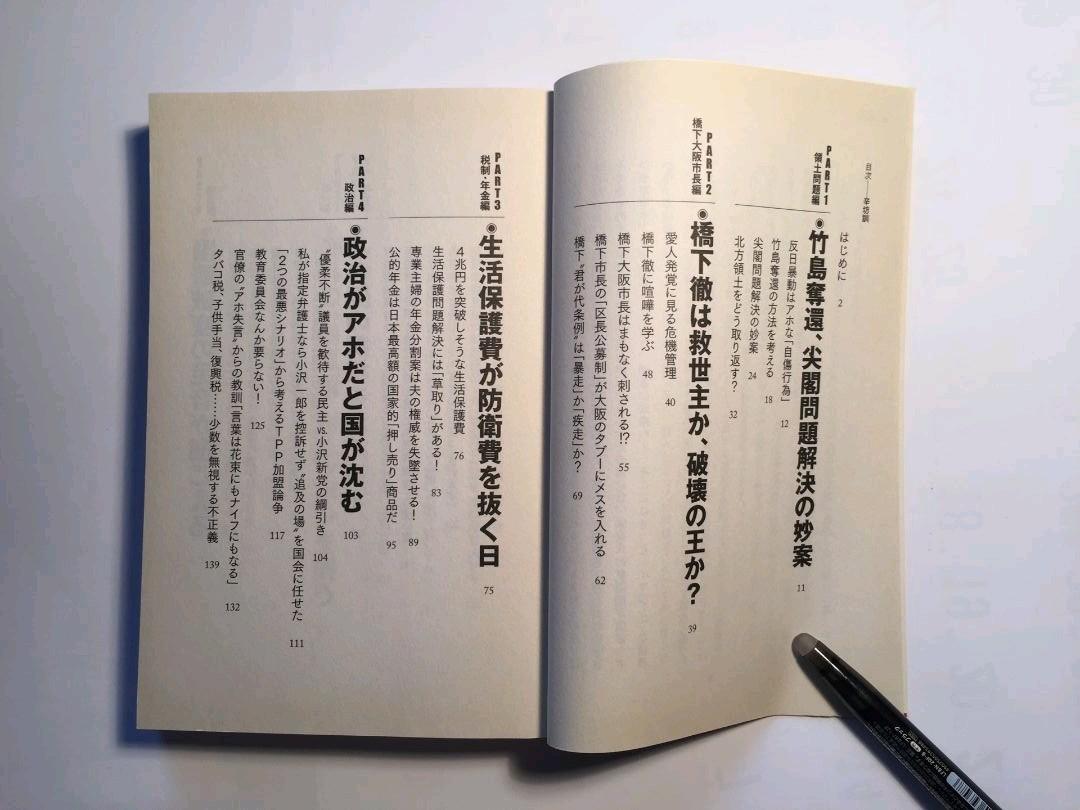 目次――辛坊訓
はじめに 2
PART1
領土問題編
◉竹島奪還、尖閣問題解決の妙案 11
反日暴動はアホな「自傷行為」 12
竹島奪還の方法を考える 18
尖閣問題解決の妙案 24
北方領土をどう取り返す? 32
PART2
橋下大阪市長編
◉橋下徹は救世主か、破壊の王か? 39
愛人発覚に見る危機管理 40
橋下徹に喧嘩を学ぶ 48
橋下大阪市長はまもなく刺される!? 55
橋下市長の「区長公募制」が大阪のタブーにメスを入れる 62
橋下〝君が代条例〟は「暴走」か「疾走」か? 69
PART3
税制・年金編
◉生活保護費が防衛費を抜く日 75
4兆円を突破しそうな生活保護費 76
生活保護問題解決には「草取り」がある! 83
専業主婦の年金分割案は夫の権威を失墜させる! 89
公的年金は日本最高額の国家的「押し売り」商品だ 95
PART4
政治編
◉政治がアホだと国が沈む 103
〝優柔不断〟議員を歓待する民主vs.小沢新党の綱引き 104
私が指定弁護士なら小沢一郎を控訴せず〝追及の場〟を国会に任せた 111
「2つの最悪シナリオ」から考えるTPP加盟論争 117
教育委員会なんか要らない! 125
官僚の〝アホ失言〟からの教訓「言葉は花束にもナイフにもなる」 132
タバコ税、子供手当、復興税……少数を無視する不正義 139